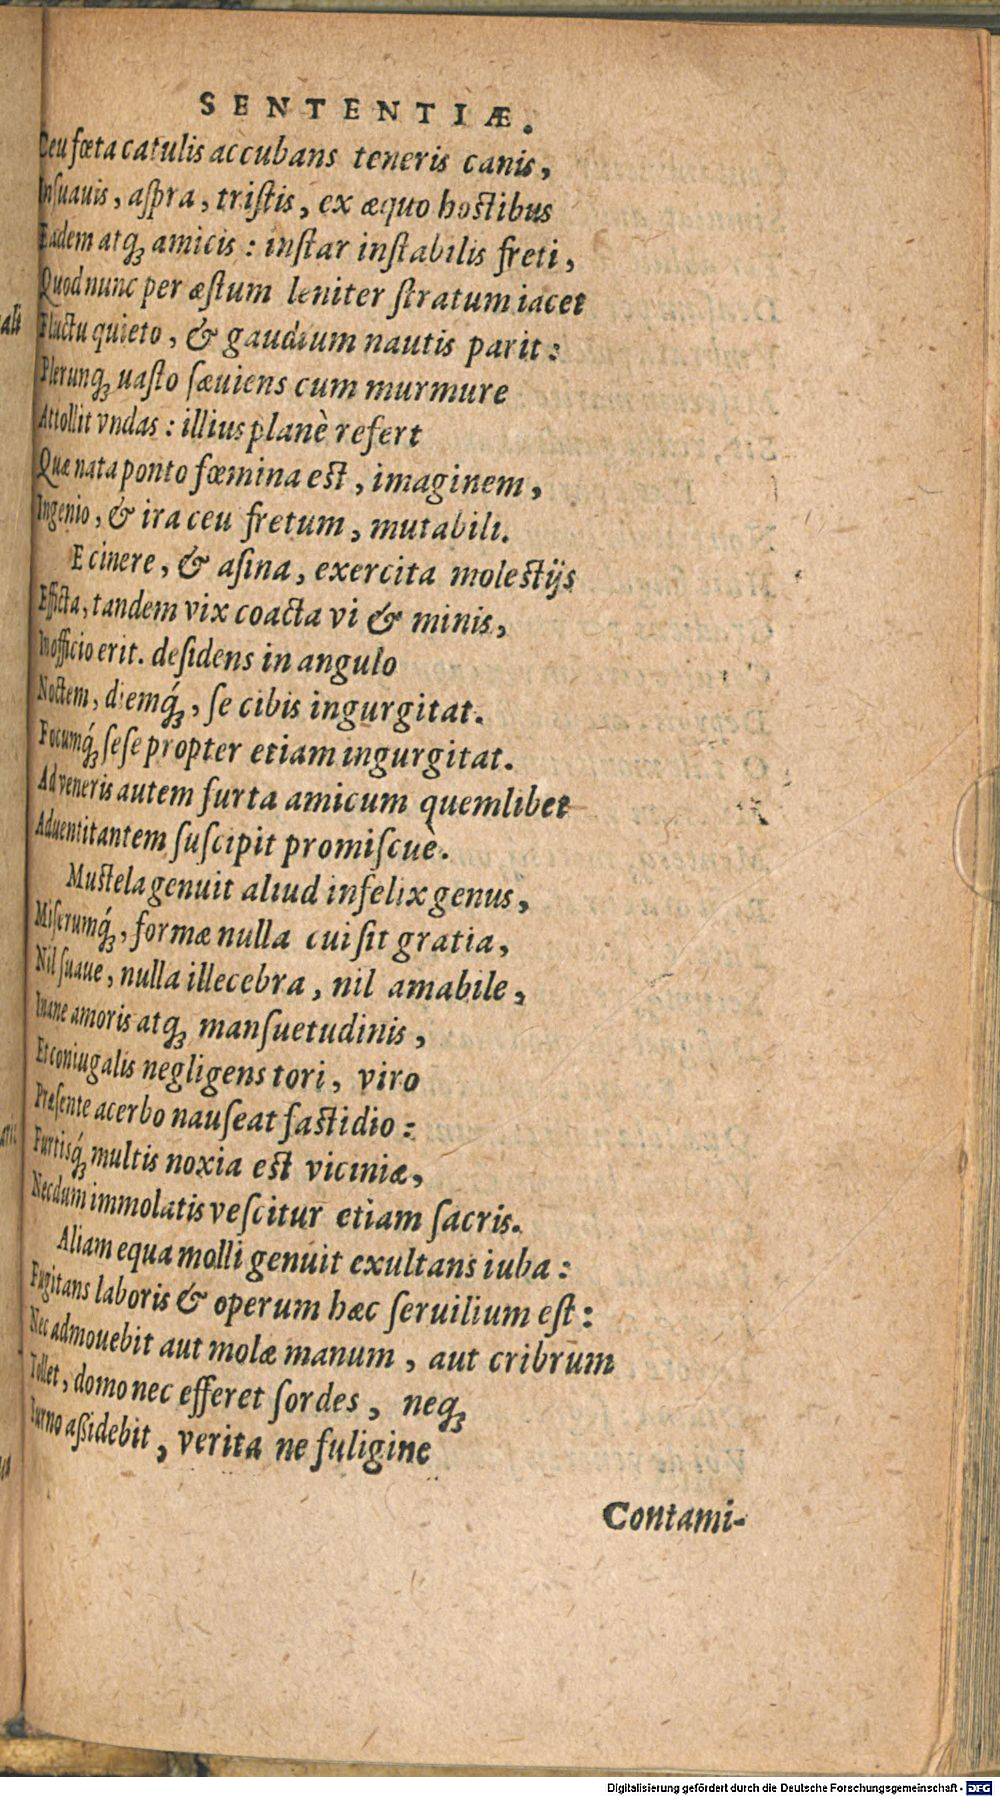 SENTENTIÆ.
Ceu fœta catulis accubans teneris canis,
Insuauis, aspra, tristis, ex æquo hostibus
Eadem atq; amicis : instar instabilis freti,
Quod nunc per æstum leniter stratum iacet
Fluctu quieto, & gaudium nautis parit :
Plerunq; uasto sæuiens cum murmure
Attollit vndas : illius planè refert
Quæ nata ponto fœmina est, imaginem,
Ingenio, & ira ceu fretum, mutabili.
E cinere, & asina, exercita molestijs
Efficta, tandem vix coacta vi & minis,
In officio erit. desidens in angulo
Noctem, diemq́;, se cibis ingurgitat.
Focumq́; sese propter etiam ingurgitat.
Ad veneris autem furta amicum quemlibet
Aduentitantem suscipit promiscuè.
Mustela genuit aliud infelix genus,
Miserumq́;, formæ nulla cui sit gratia,
Nil suaue, nulla illecebra, nil amabile,
Inane amoris atq; mansuetudinis,
Et coniugalis negligens tori, viro
Præsente acerbo nauseat fastidio :
Furtisq́; multis noxia est viciniæ,
Necdum immolatis vescitur etiam sacris.
Aliam equa molli genuit exultans iuba :
Fugitans laboris & operum hæc seruilium est :
Nec admouebit aut molæ manum, aut cribrum
Tollet, domo nec efferet sordes, neq;
Furno assidebit, verita ne fuligine
Contami-
Digitalisierung gefördert durch die Deutsche Forschungsgemeinschaft - DFG